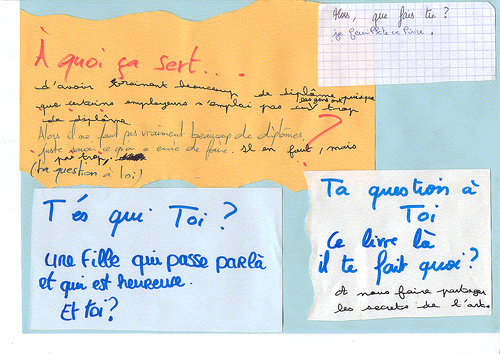 Alors, que fais tu ?
je feuillette ce livre.
À quoi ça sert....
d'avoir vraiment beaucoup de diplôme
que certains employeurs n'emploi pas trop
de diplôme
Alors il ne faut pas vraiment beaucoup de diplômes,
juste savoir ce qu'on a envie de faire. Il en faut, mais
pas trop.
?
(ta question à toi)
T'es qui Toi ?
une fille qui passe parlà
et qui est heureuse.
Et toi?
Ta question à
Toi
Ce livre là
il te fait quoi ?
A nous faire partager
les secrets de l'arbre